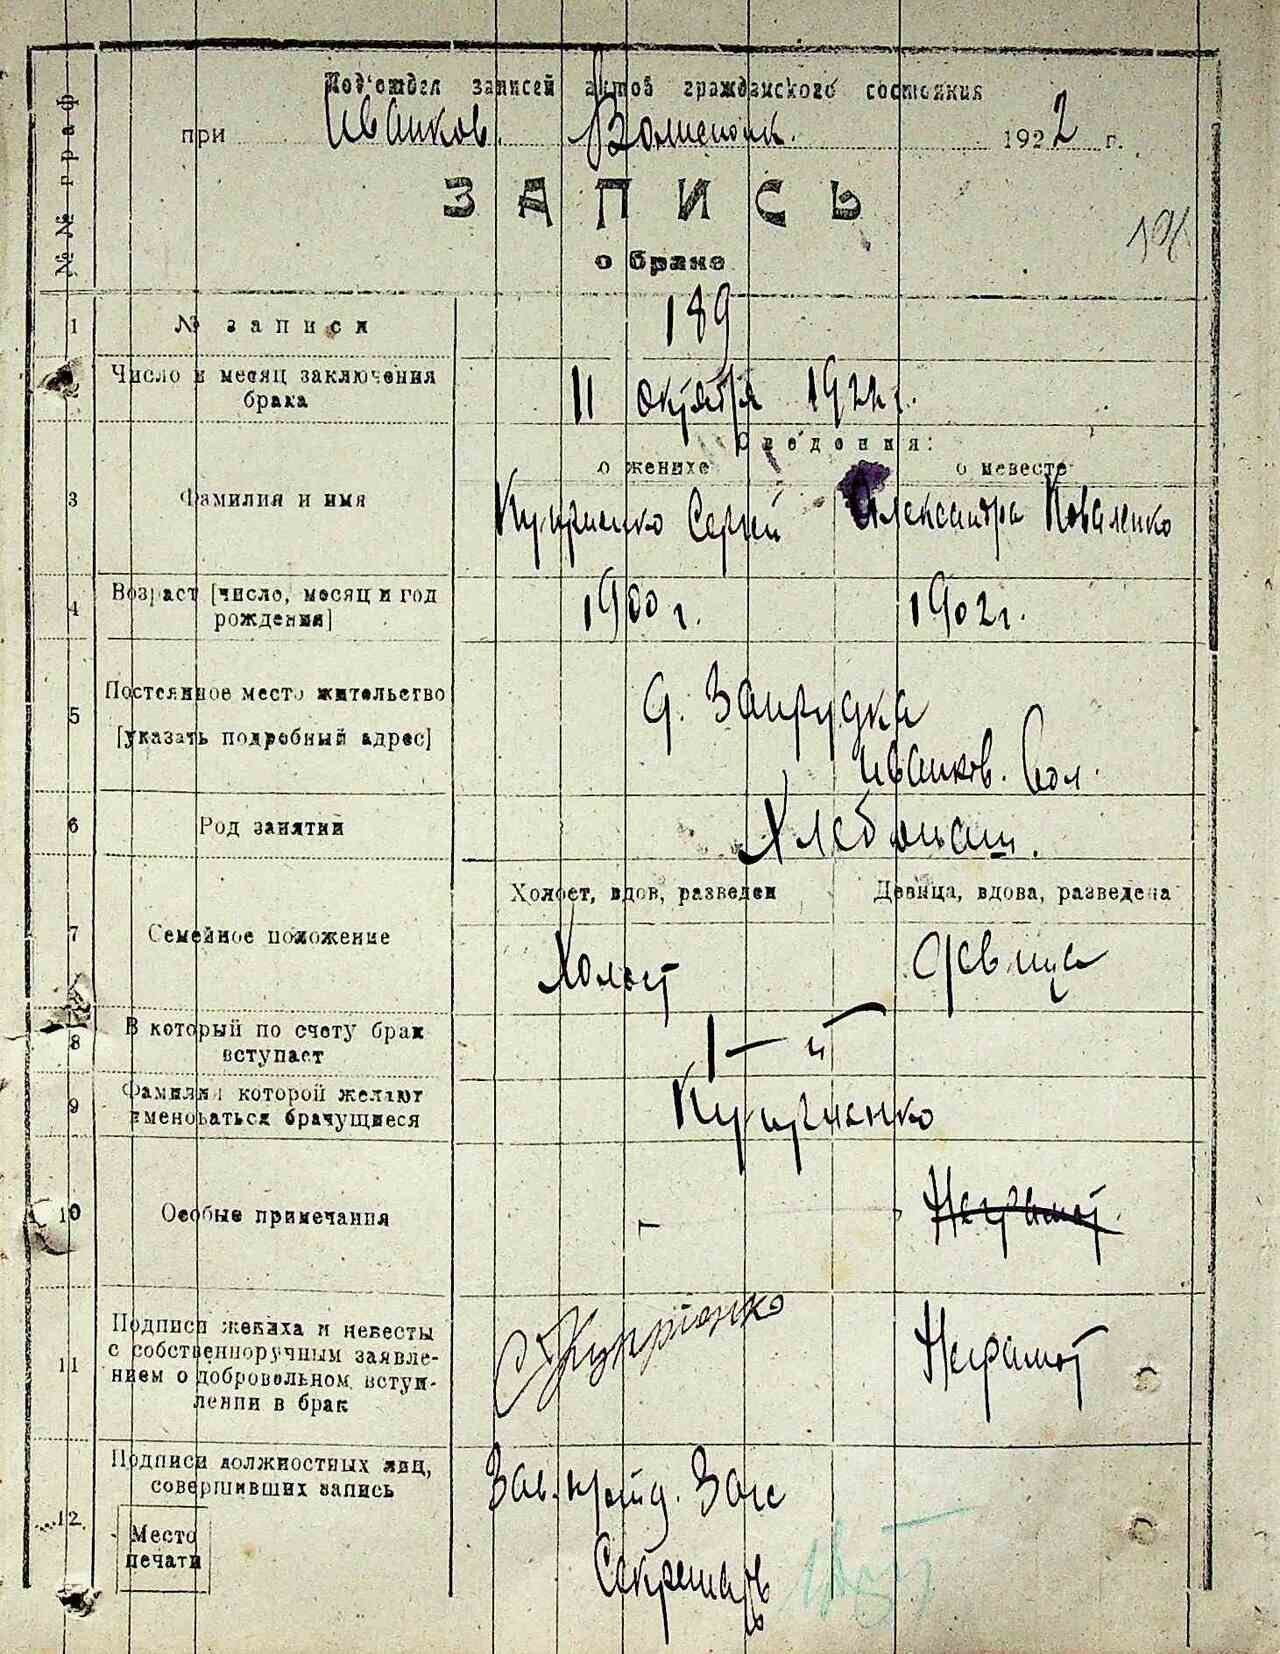 №№ граф
Под'отдел записей актов гражданского состояния
при Иванков. Волисполк. 1922 г.
ЗАПИСЬ
о браке
196
1 № записи 189
Число и месяц заключения
брака
11 октября 1922 г.
Сведения:
о женихе о невесте
3 Фамилия и имя Куприенко Сергей Александра Коваленко
4 Возраст [число, месяц и год
рождения]
1900 г. 1902 г.
5 Постоянное место жительство
[указать подробный адрес]
д. Запрудка
Иванков. Вол.
6 Род занятий Хлебопаш.
Холост, вдов, разведен Девица, вдова, разведена
7 Семейное положение Холост Девица
8 В который по счету брак
вступает
1-й
9 Фамилия которой желают
именоваться брачущиеся
Куприенко
10 Особые примечания - Неграмот.
11 Подписи жениха и невесты
с собственноручным заявле-
нием о добровольном вступ-
лении в брак
С Куприенко Неграмот
12 Подписи должностных лиц,
совершивших запись
Зав. Загс
Место
печати
Секретарь